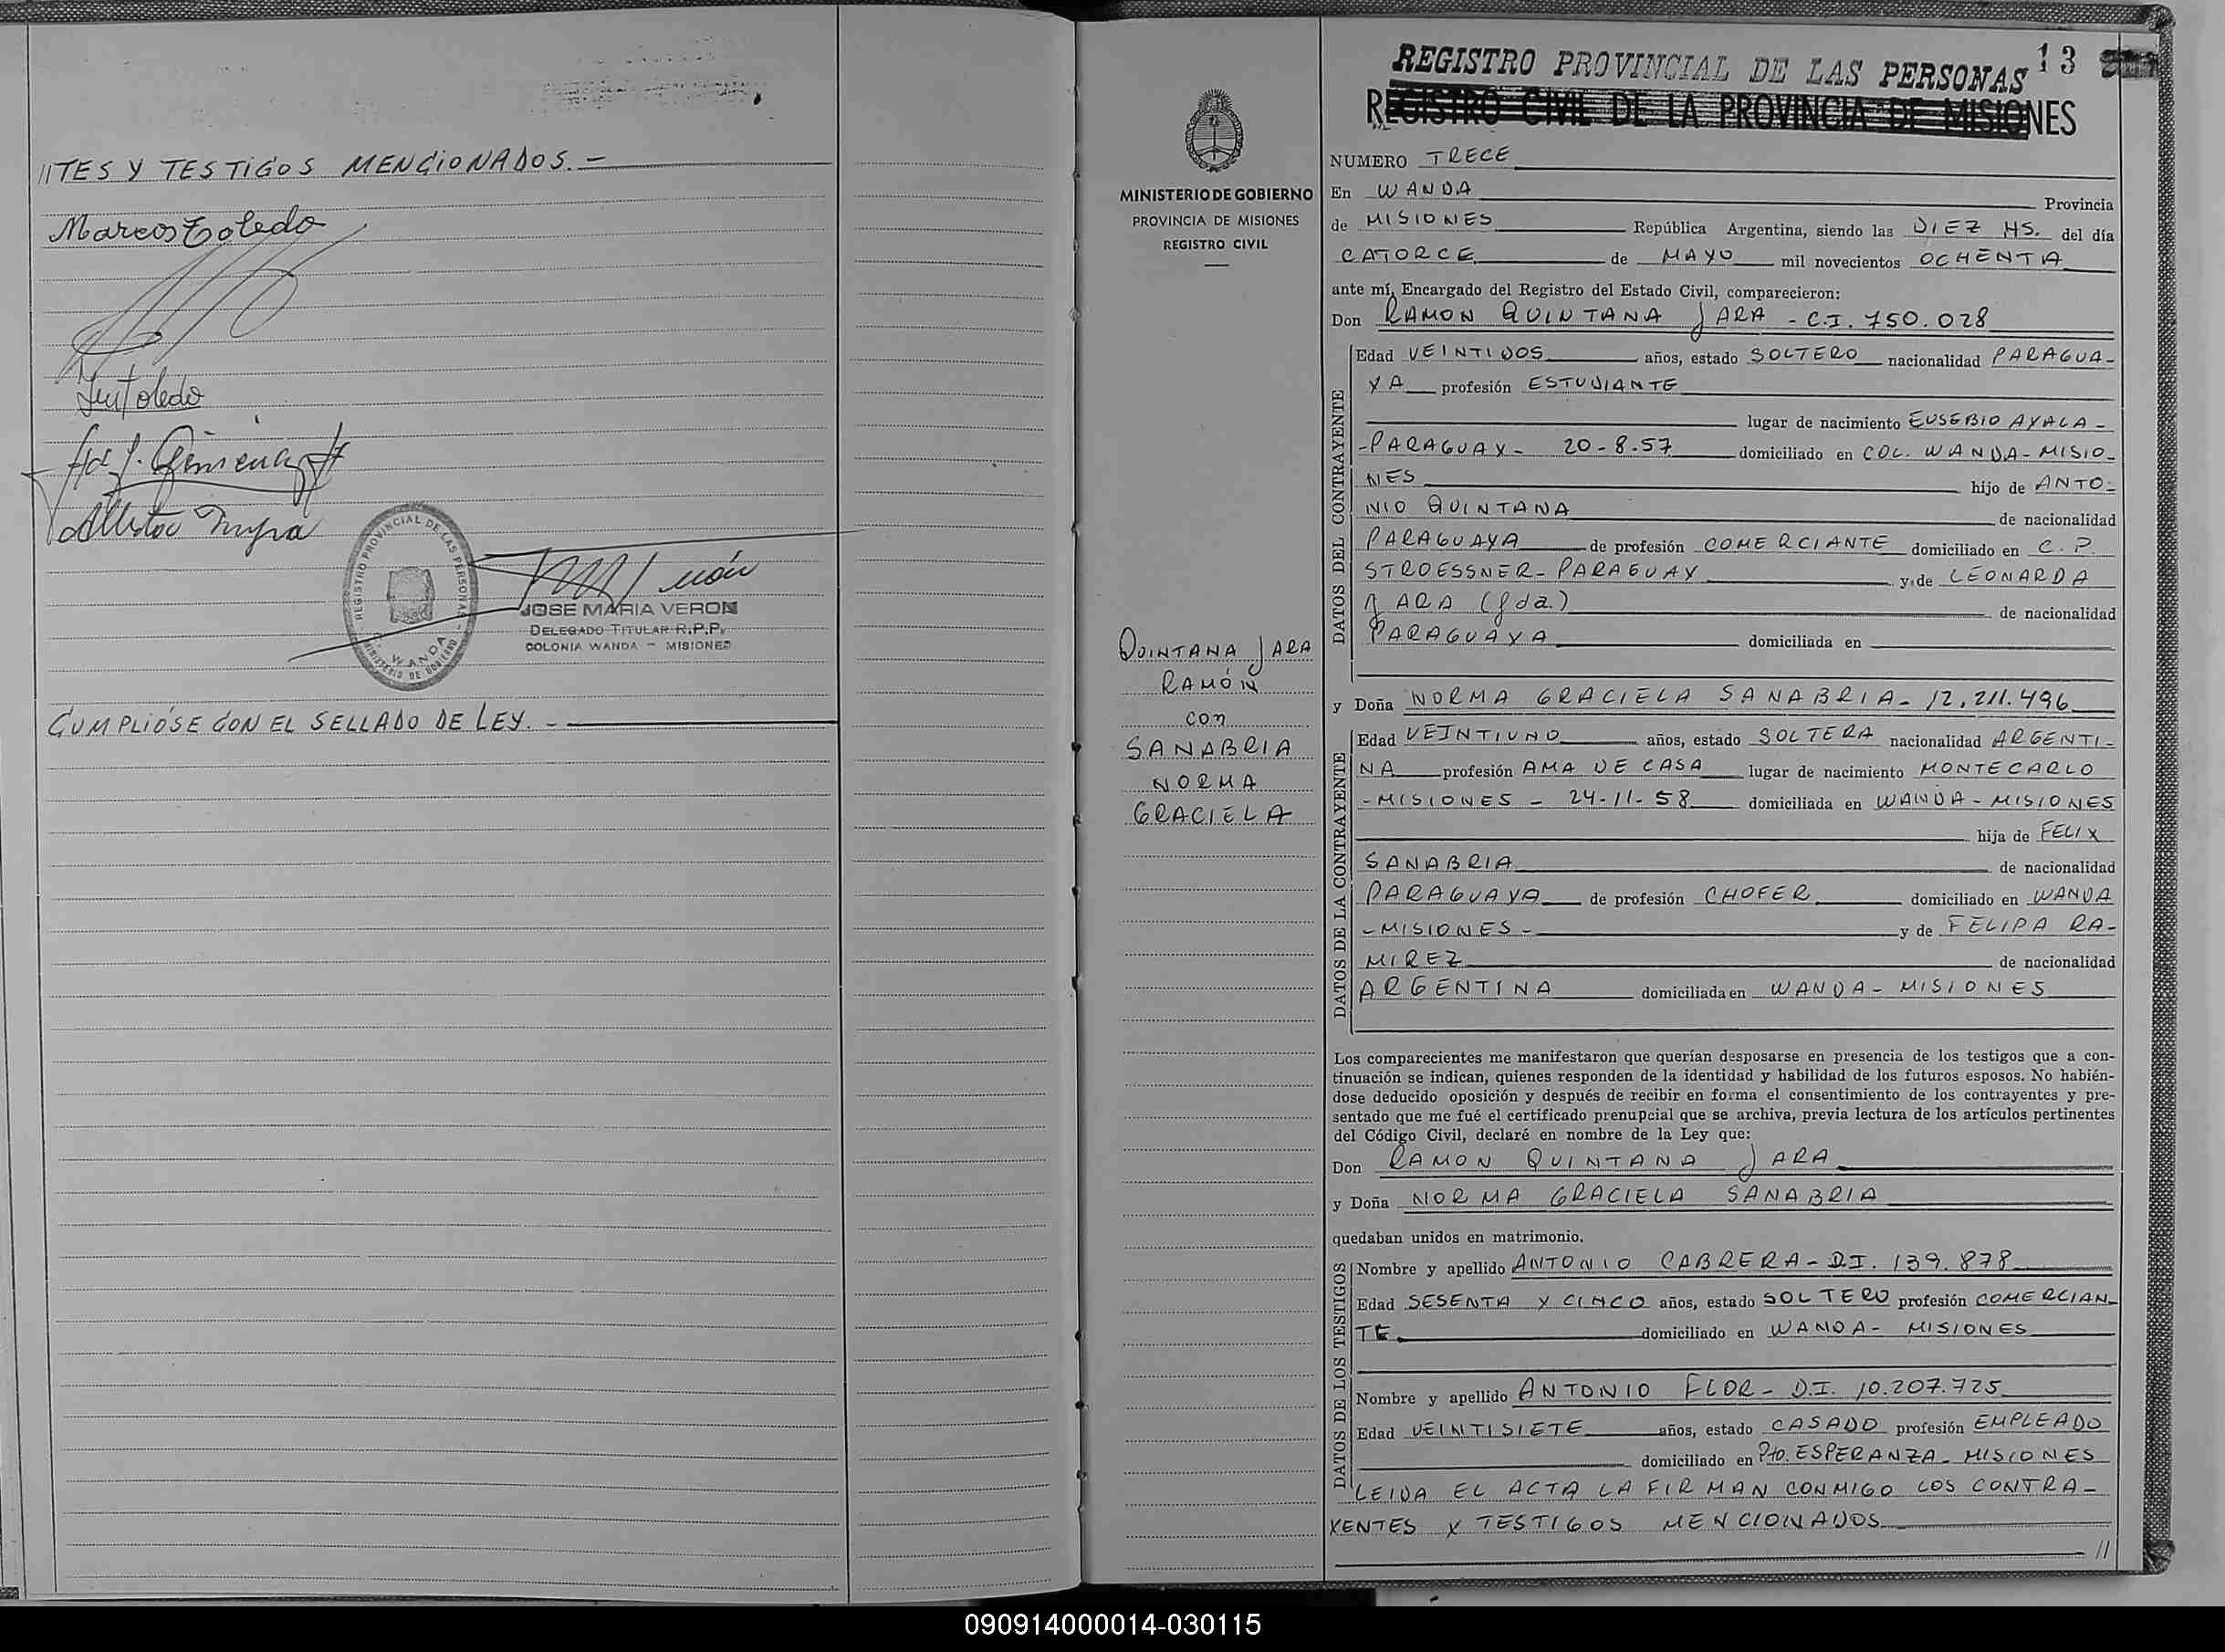 //TES Y TESTIGOS MENCIONADOS.-
Marcos Toledo
Alberto
REGISTRO PROVINCIAL DE LAS PERSONAS
WANDA
MINISTERIO DE GOBIERNO
JOSE MARIA VERON
DELEGADO TITULAR R.P.P.
COLONIA WANDA - MISIONES
CUMPLIÓSE CON EL SELLADO DE LEY.-
MINISTERIO DE GOBIERNO
PROVINCIA DE MISIONES
REGISTRO CIVIL
QUINTANA JARA
RAMÓN
con
SANABRIA
NORMA
GRACIELA
REGISTRO PROVINCIAL DE LAS PERSONAS 13
REGISTRO CIVIL DE LA PROVINCIA DE MISIONES
NUMERO TRECE
En WANDA Provincia
de MISIONES República Argentina, siendo las DIEZ HS. del día
CATORCE de MAYO mil novecientos OCHENTA
ante mí, Encargado del Registro del Estado Civil, comparecieron:
Don RAMON QUINTANA JARA - C.I. 750.028
DATOS DEL CONTRAYENTE
Edad VEINTIDOS años, estado SOLTERO nacionalidad PARAGUA-
YA profesión ESTUDIANTE
lugar de nacimiento EUSEBIO AYALA-
-PARAGUAY- 20-8-57 domiciliado en COL. WANDA-MISIO-
NES hijo de ANTO-
NIO QUINTANA de nacionalidad
PARAGUAYA de profesión COMERCIANTE domiciliado en C.P.
STROESSNER-PARAGUAY y de LEONARDA
JARA (fda.) de nacionalidad
PARAGUAYA domiciliada en
y Doña NORMA GRACIELA SANABRIA- 12.211.496
DATOS DE LA CONTRAYENTE
Edad VEINTIUNO años, estado SOLTERA nacionalidad ARGENTI-
NA profesión AMA DE CASA lugar de nacimiento MONTECARLO
-MISIONES- 24-11-58 domiciliada en WANDA-MISIONES
hija de FELIX
SANABRIA de nacionalidad
PARAGUAYA de profesión CHOFER domiciliado en WANDA
-MISIONES- y de FELIPA RA-
MIREZ de nacionalidad
ARGENTINA domiciliada en WANDA-MISIONES
Los comparecientes me manifestaron que querían desposarse en presencia de los testigos que a con-
tinuación se indican, quienes responden de la identidad y habilidad de los futuros esposos. No habién-
dose deducido oposición y después de recibir en forma el consentimiento de los contrayentes y pre-
sentado que me fué el certificado prenupcial que se archiva, previa lectura de los artículos pertinentes
del Código Civil, declaré en nombre de la Ley que:
Don RAMON QUINTANA JARA
y Doña NORMA GRACIELA SANABRIA
quedaban unidos en matrimonio.
DATOS DE LOS TESTIGOS
Nombre y apellido ANTONIO CABRERA-D.I. 139.878
Edad SESENTA Y CINCO años, estado SOLTERO profesión COMERCIAN-
TE domiciliado en WANDA-MISIONES
Nombre y apellido ANTONIO FLOR-D.I. 10.207.725
Edad VEINTISIETE años, estado CASADO profesión EMPLEADO
domiciliado en Pto. ESPERANZA-MISIONES
LEIDA EL ACTA LA FIRMAN CONMIGO LOS CONTRA-
YENTES Y TESTIGOS MENCIONADOS
//
090914000014-030115